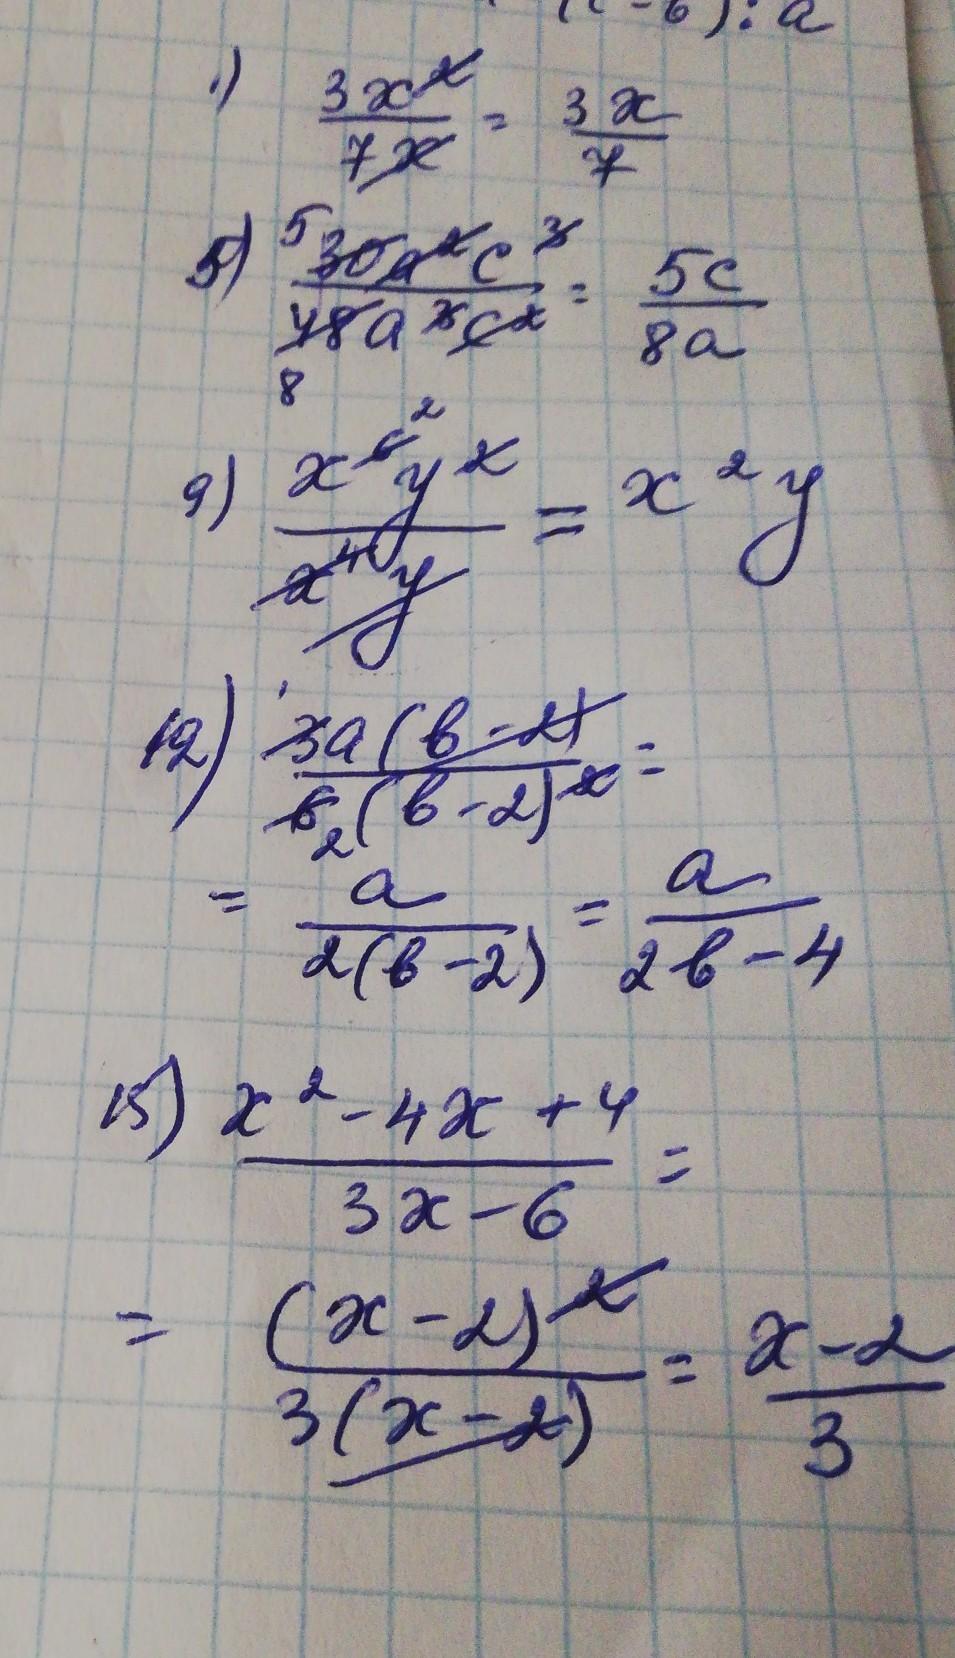 (c-b):a
1) 3x²/7x = 3x/7
5) 5 30a²c³/48a³c² = 5c/8a
8
9) x⁶ ² y²/x⁴y = x²y
12) 3a(b-2)/6 2(b-2)² =
= a/2(b-2) = a/2b-4
15) x²-4x+4/3x-6 =
= (x-2)²/3(x-2) = x-2/3